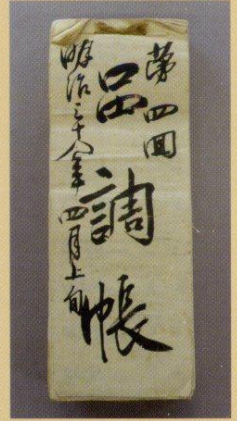 第四回
品調帳
明治三十八年四月上旬